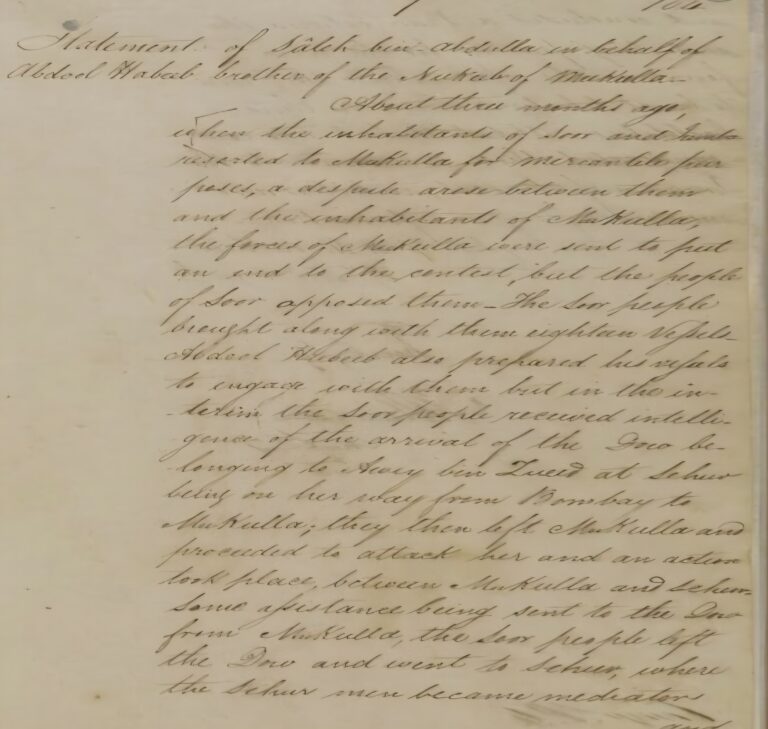 Statement of Sáleh bin Abdulla in behalf of
Abdool Habeeb brother of the Nukeeb of Mukulla
About three months ago,
when the inhabitants of Soor and
resorted to Mukulla for mercantile pur
poses, a despute arose between them
and the inhabitants of Mukulla,
the forces of Mukulla were sent to put
an end to the contest, but the people
of Soor opposed them_The Soor people
brought along with them eighteen Vessels_
Abdool Habeeb also prepared his vessels
to engage with them but in the in-
-terim the Soor people received intelli-
gence of the arrival of the Dow be-
-longing to bin Zueed at Schur
being on her way from Bombay to
Mukulla; they then left Mukulla and
proceeded to attack her and an action
took place, between Mukulla and Schur.
Some assistance being sent to the Dow
from Mukulla, the Soor people left
the Dow and went to Schur, where
the Schur men became mediators
and